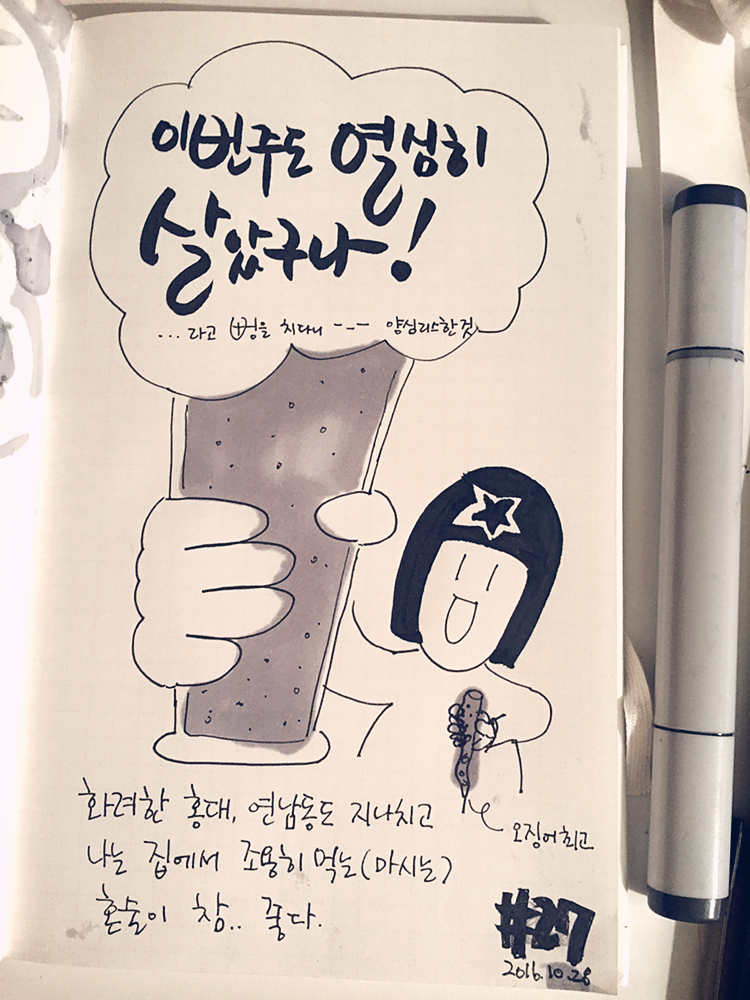 이번주도 열심히
살았구나!
... 라고 뻥을 치다니 --- 양심리스한것
오징어 최고
화려한 홍대, 연남동도 지나치고
나는 집에서 조용히 먹는(마시는)
혼술이 참.. 좋다.
#27
2016.10.28